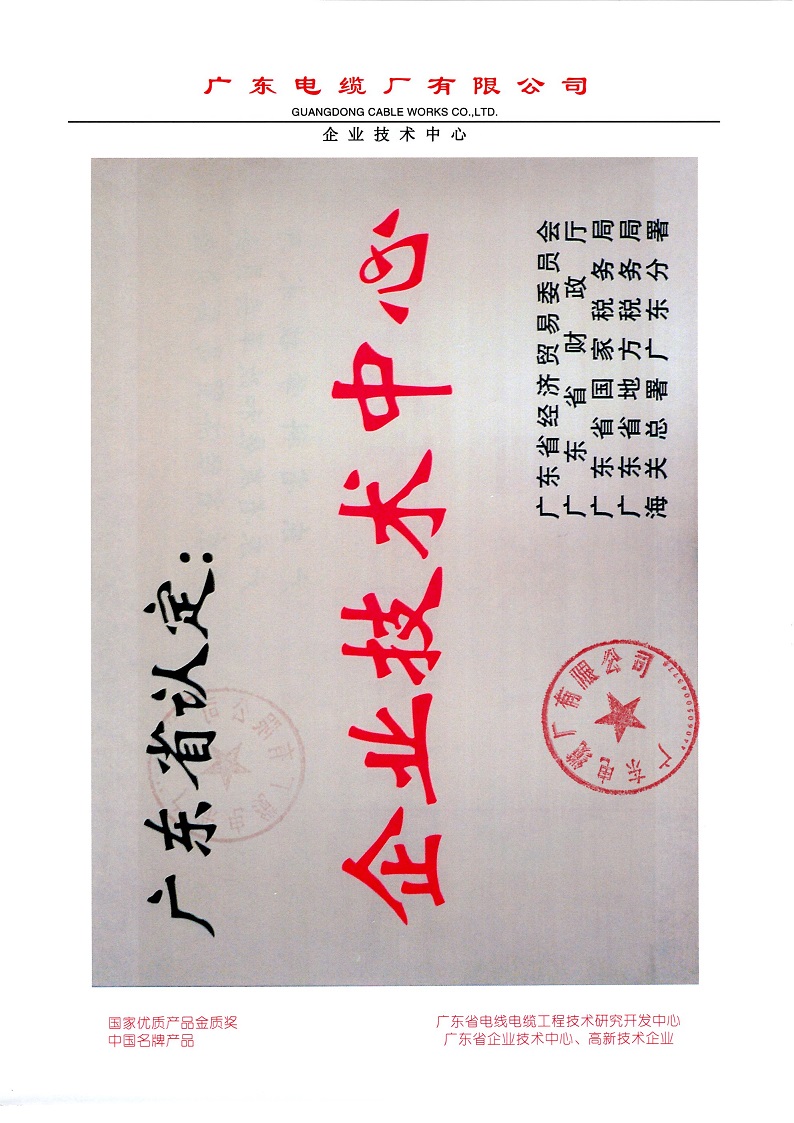 广东电缆厂有限公司
GUANGDONG CABLE WORKS CO.,LTD.
企业技术中心
广东省认定：
企业技术中心
广东省经济贸易委员会
广东省财政厅
广东省国家税务局
广东省地方税务局
海关总署广东分署
广东电缆厂有限公司
国家优质产品金质奖
中国名牌产品
广东省电线电缆工程技术研究开发中心
广东省企业技术中心、高新技术企业